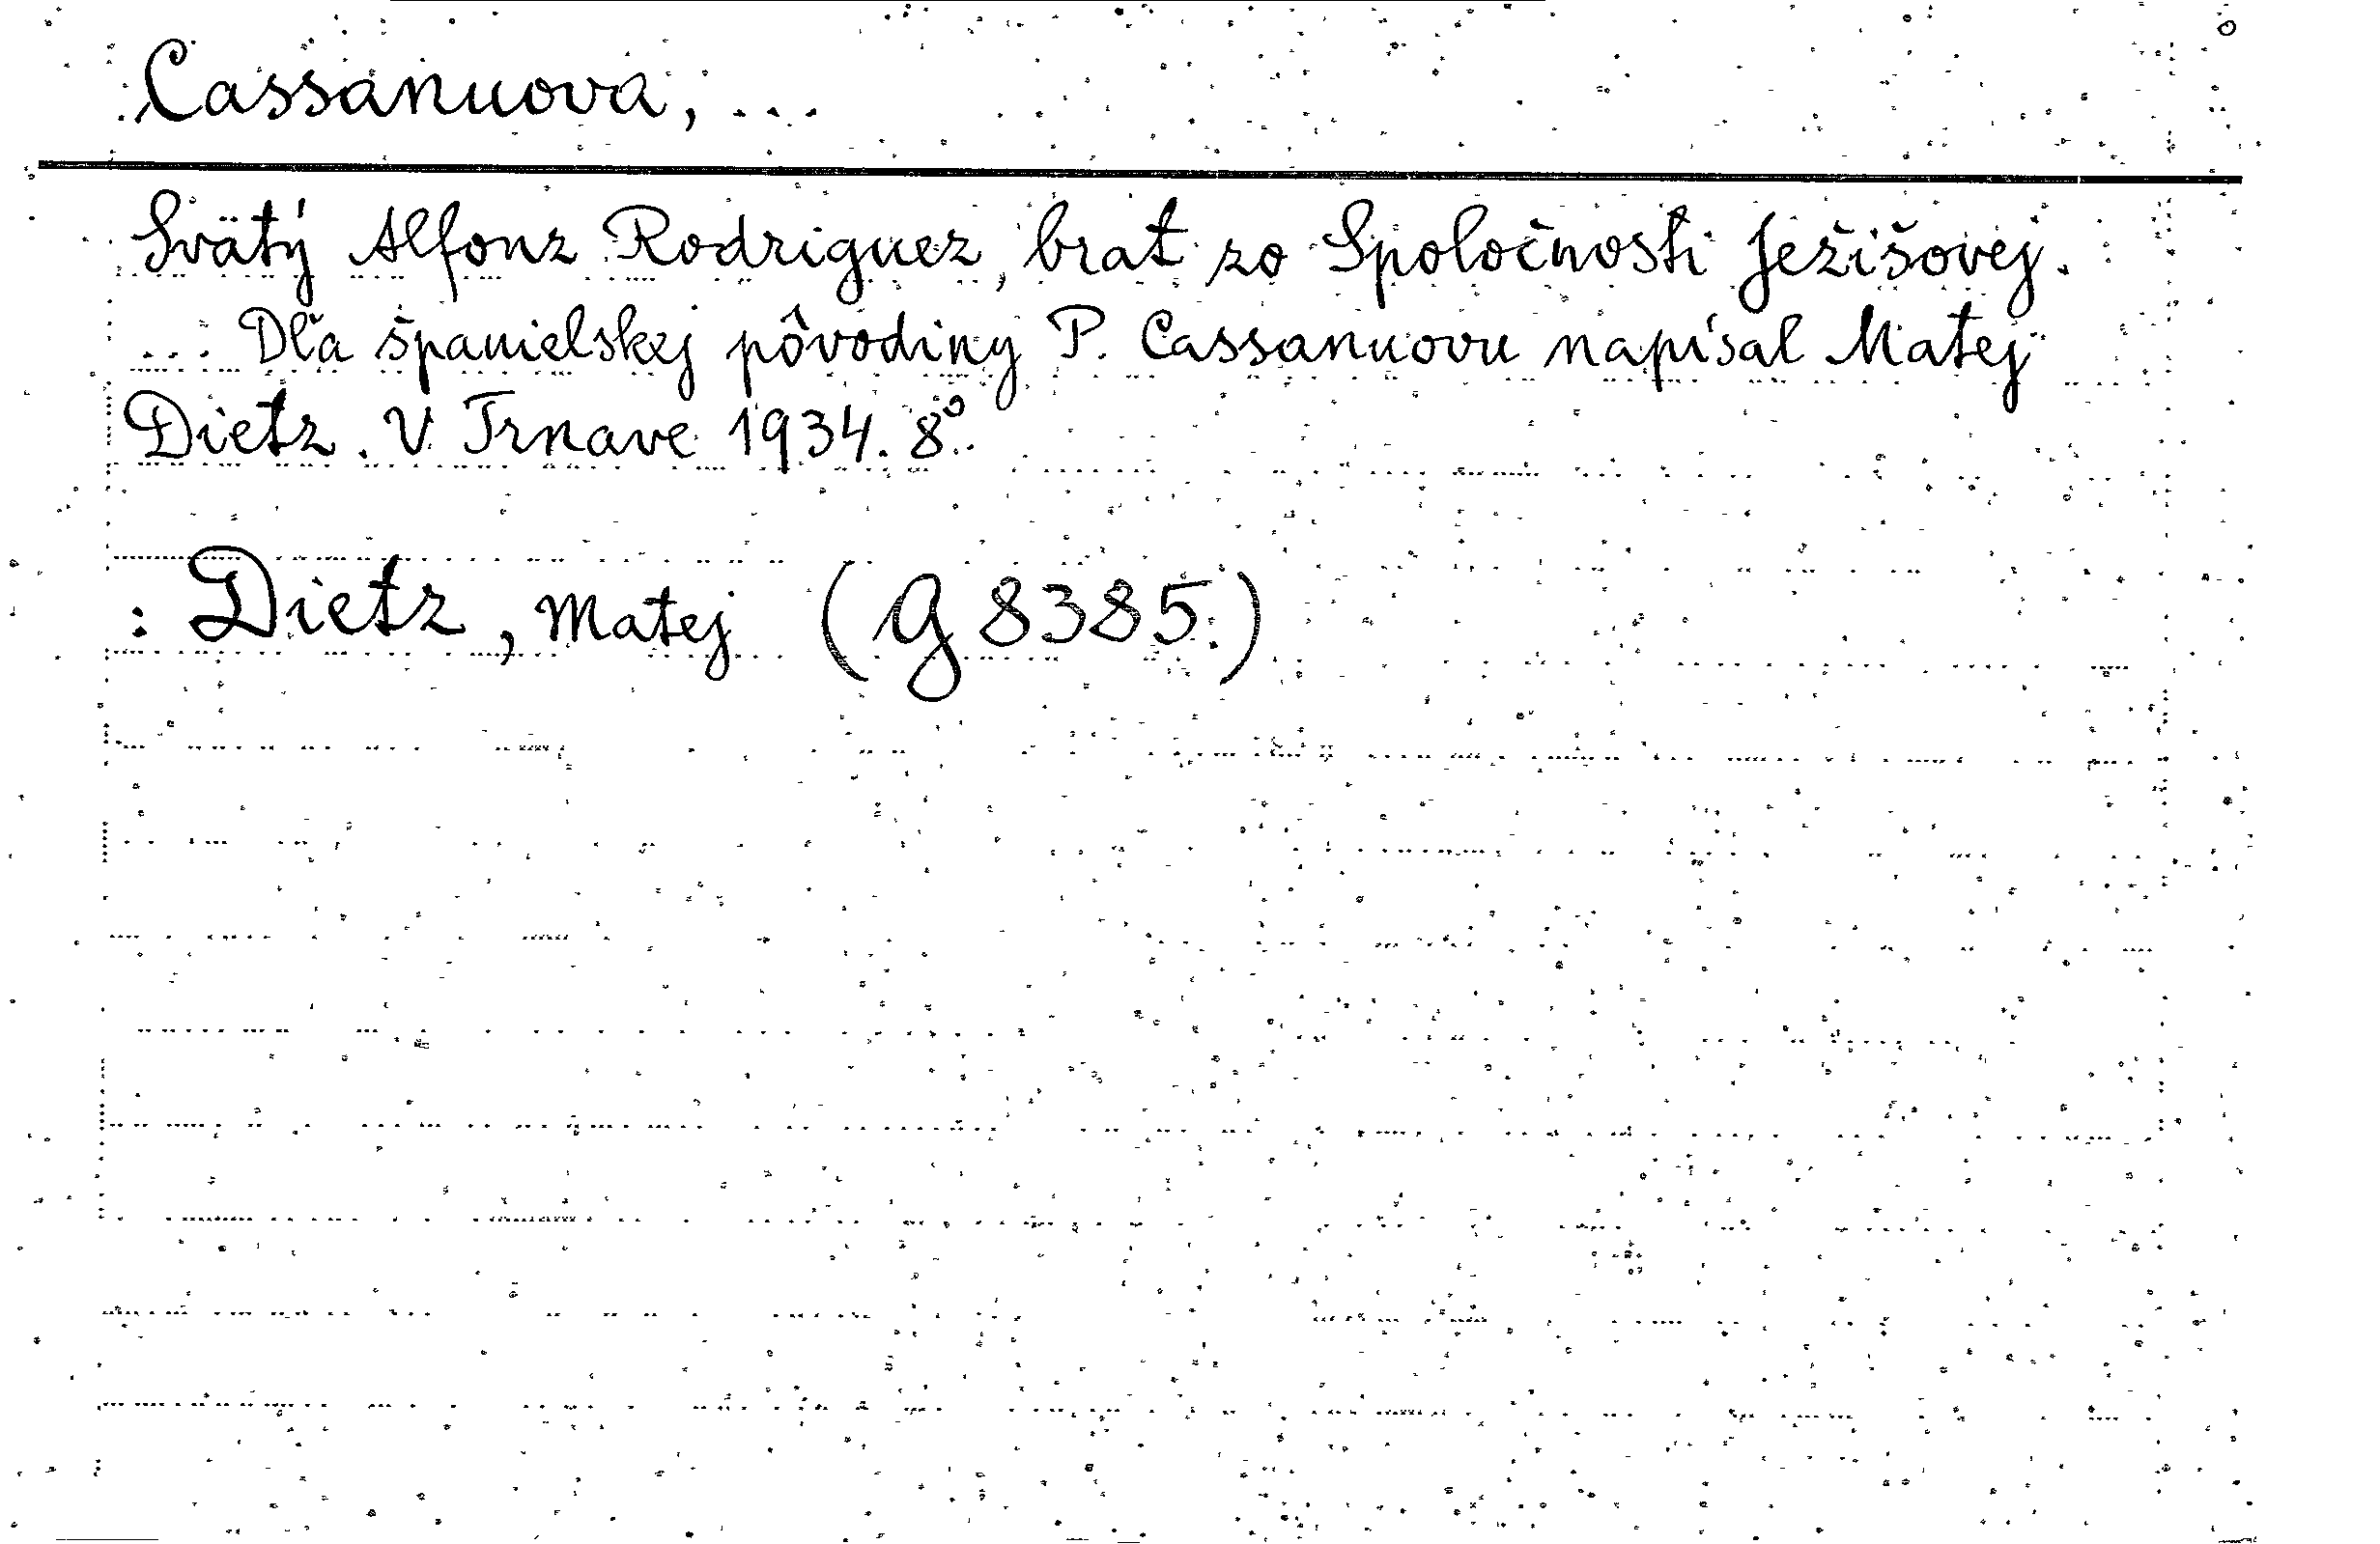 Cassanuova, ...
Svätý Alfonz Rodriguez, brat zo Spoločnosti Ježišovej.
... Dľa španielskej pôvodiny P. Cassanuovu napísal Matej
Dietz. V Trnave 1934. 8°.
: Dietz, Matej (G 8385)